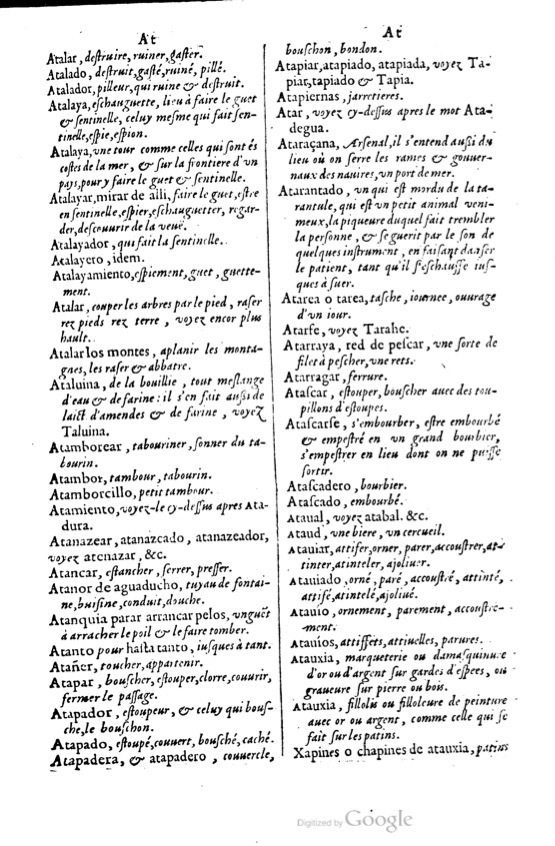 At
Atalar, destruire, ruiner, gaster.
Atalado, destruit, gasté, ruiné, pillé.
Atalador, pilleur, qui ruine & destruit.
Atalaya, eschauguette, lieu à faire le guet
& sentinelle, celuy mesme qui fait sen-
tinelle, espie, espion.
Atalaya, vne tour comme celles qui sont és
costes de la mer, & sur la frontiere d'vn
pays, pour y faire le guet & sentinelle.
Atalayar, mirar de alli, faire le guet, estre
en sentinelle, espier, eschauguetter, regar-
der, descouurir de la veuë.
Atalayador, qui fait la sentinelle.
Atalayero, idem.
Atalayamiento, espiement, guet, guette-
ment.
Atalar, couper les arbres par le pied, raser
rez pieds rez terre, voyez encor plus
hault.
Atalar los montes, aplanir les monta-
gnes, les raser & abbatre.
Ataluina, de la bouillie, tout meslange
d'eau & de farine: il s'en fait aussi de
laict d'amendes & de farine, voyez
Taluina.
Atamborear, tabouriner, sonner du ta-
bourin.
Atambor, tambour, tabourin.
Atamborcillo, petit tambour.
Atamiento, voyez-le cy-dessus apres Ata-
dura.
Atanazear, atanazcado, atanazeador,
voyez atenazar, &c.
Atancar, estancher, serrer, presser.
Atanor de aguaducho, tuyau de fontai-
ne, buisine, conduit, douche.
Atanquia parar arrancar pelos, vnguët
à arracher le poil & le faire tomber.
Atanto pour hasta tanto, iusques à tant.
Atañer, toucher, appartenir.
Atapar, bouscher, estouper, clorre, couurir,
fermer le passage.
Atapador, estoupeur, & celuy qui bous-
che, le bouschon.
Atapado, estoupé, couuert, bousché, caché.
Atapadera, & atapadero, couuercle,
At
bouschon, bondon.
Atapiar, atapiado, atapiada, voyez Ta-
piar, tapiado & Tapia.
Atapiernas, jarretieres.
Atar, voyez cy-dessus apres le mot Ata-
degua.
Ataraçana, Arsenal, il s'entend aussi du
lieu où on serre les rames & gouuer-
naux des nauires, vn port de mer.
Atarantado, vn qui est mordu de la ta-
rantule, qui est vn petit animal veni-
meux, la piqueure duquel fait trembler
la personne, & se guerit par le son de
quelques instrument, en faisant danser
le patient, tant qu'il s'eschauffe ius-
ques à suer.
Atarea o tarea, tasche, iournee, ouurage
d'vn iour.
Atarfe, voyez Tarahe.
Atarraya, red de pescar, vne sorte de
filet à pescher, vne rets.
Atarragar, ferrure.
Atascar, estouper, bouscher auec des tou-
pillons d'estoupes.
Atascarse, s'embourber, estre embourbé
& empestré en vn grand bourbier,
s'empestrer en lieu dont on ne puisse
sortir.
Atascadero, bourbier.
Atascado, embourbé.
Ataual, voyez atabal. &c.
Ataud, vne biere, vn cercueil.
Atauiar, attifer, orner, parer, accoustrer, at-
tinter, atinteler, ajoliuer.
Atauiado, orné, paré, accoustré, attinté,
attifé, atintelé, ajoliué.
Atauío, ornement, parement, accoustre-
ment.
Atauíos, attiffets, attiuelles, parures.
Atauxia, marqueterie ou damasquinure
d'or ou d'argent sur gardes d'espees, ou
graueure sur pierre ou bois.
Atauxia, fillolis ou filloleure de peinture
auec or ou argent, comme celle qui se
fait sur les patins.
Xapines o chapines de atauxia, patins
Digitized by Google